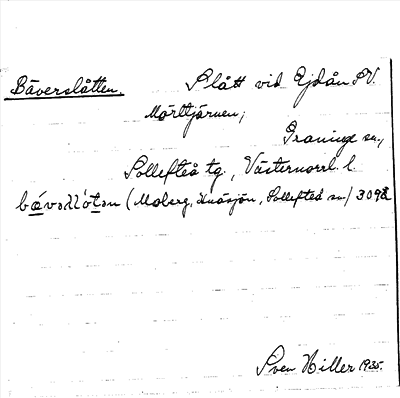 Bäverslåtten. Slått vid Ejdån SV.
Mörttjärnen,
Graninge sn,
Sollefteå tg., Västernorrl. l.
(Moberg, Knäsjön, Sollefteå sn) 309
Sven Hiller 1935.